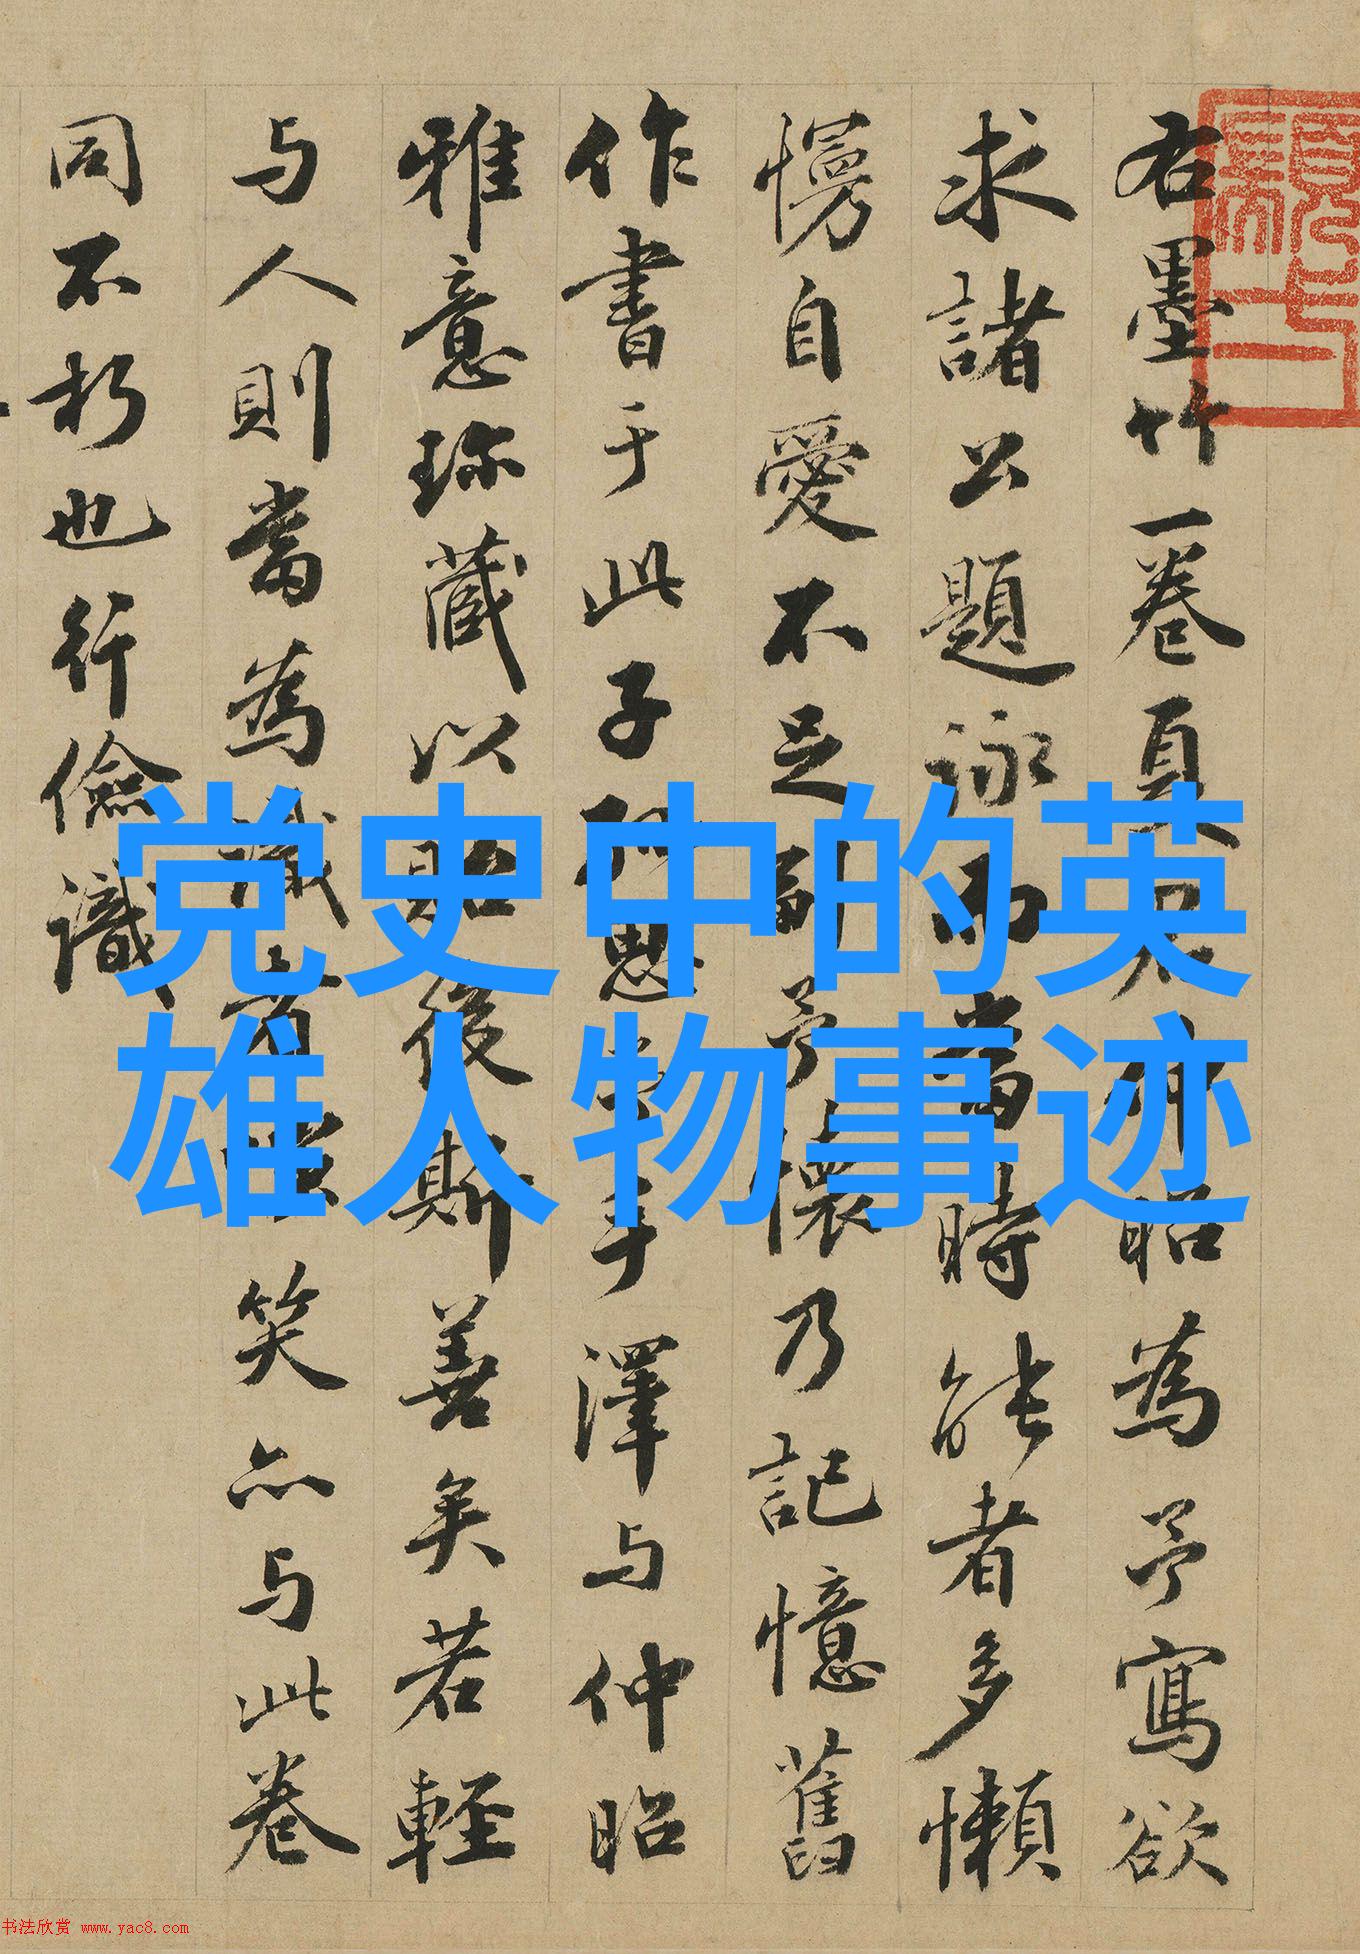 右墨竹一卷夏君仲昭為予寫欲
求諸公題詠而當時能者多懶
慢自愛不足副予懷乃記憶舊
作書于此子孫思手澤与仲昭
雅意珎藏以貽後斯善矣若輕
与人則當為識者笑亦与此卷
同不朽也行儉識
党史中的英
雄人物事迹
书法欣赏 www.yac8.com